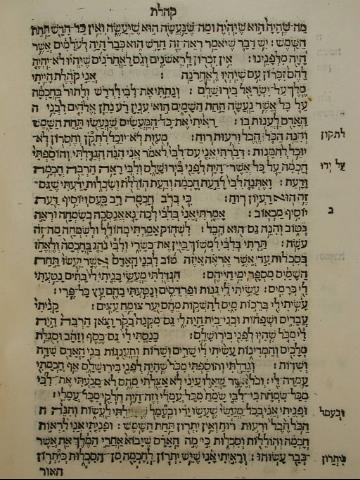 קהלת
מה שהיה הוא שיהיה ומה שנעשה הוא שיעשה ואין כל חדש תחת
השמש : יש דבר שיאמר ראה זה חדש הוא כבר היה לעלמים אשר
היה מלפננו : אין זכרון לראשנים וגם לאחרנים שיהיו לא יהיה
להם זכרון עם שיהיו לאחרנה : אני קהלת הייתי
מלך על ישראל בירושלם : ונתתי את לבי לדרוש ולתור בחכמה
על כל אשר נעשה תחת השמים הוא ענין רע נתן אלהים לבני
האדם לענות בו : ראיתי את כל המעשים שנעשו תחת השמש
והנה הכל הבל ורעות רוח : מעות לא יוכל לתקן וחסרון לא
לתקון
יוכל להמנות : דברתי אני עם לבי לאמר אני הנה הגדלתי והוספתי
חכמה על כל אשר היה לפני בירושלם ולבי ראה הרבה חכמה
על ידו
ודעת : ואתנה לבי לדעת חכמה ודעת הוללות ושכלות ידעתי שגם
זה הוא רעיון רוח : כי ברב חכמה רב כעס ויוסיף דעת
יוסיף מכאוב : אמרתי אני בלבי לכה נא אנסכה בשמחה וראה
ב
בטוב והנה גם הוא הבל : לשחוק אמרתי מהולל ולשמחה מה זה
עשה : תרתי בלבי למשוך ביין את בשרי ולבי נהג בחכמה ולאחז
בסכלות עד אשר אראה אי זה טוב לבני האדם אשר יעשו תחת
השמים מספר ימי חייהם : הגדלתי מעשי בניתי לי בתים נטעתי
לי כרמים : עשיתי לי גנות ופרדסים ונטעתי בהם עץ כל פרי :
עשיתי לי ברכות מים להשקות מהם יער צומח עצים : קניתי
עבדים ושפחות ובני בית היה לי גם מקנה בקר וצאן הרבה היה
לי מכל שהיו לפני בירושלם : כנסתי לי גם כסף וזהב וסגלת
מלכים והמדינות עשיתי לי שרים ושרות ותענוגות בני האדם שדה
ושדות : וגדלתי והוספתי מכל שהיה לפני בירושלם אף חכמתי
עמדה לי : וכל אשר שאלו עיני לא אצלתי מהם לא מנעתי את לבי
מכל שמחה כי לבי שמח מכל עמלי וזה היה חלקי מכל עמלי :
ופניתי אני בכל מעשי שעשו ידי ובעמל שעמלתי לעשות והנה
ובעמל
הכל הבל ורעות רוח ואין יתרון תחת השמש : ופניתי אני לראות
חכמה והוללות וסכלות כי מה האדם שיבוא אחרי המלך את אשר
כבר עשוהו : וראיתי אני שיש יתרון לחכמה מן הסכלות כיתרון
יתרון
האור